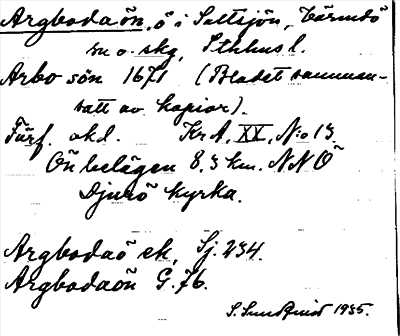 Argbodaön, ö i Saltsjön, Värmdö
sn o. skg, Sthlms l.
Arbo sön 1671 (Bladet samman-
satt av kopior).
Förf. okd. KrA, XX, N:o 13.
Ön belägen 8.3 km. NNÖ
Djurö kyrka.
Argbodaö ek, Sj. 234.
Argbodaön G. 76.
S. Sundqvist 1935.